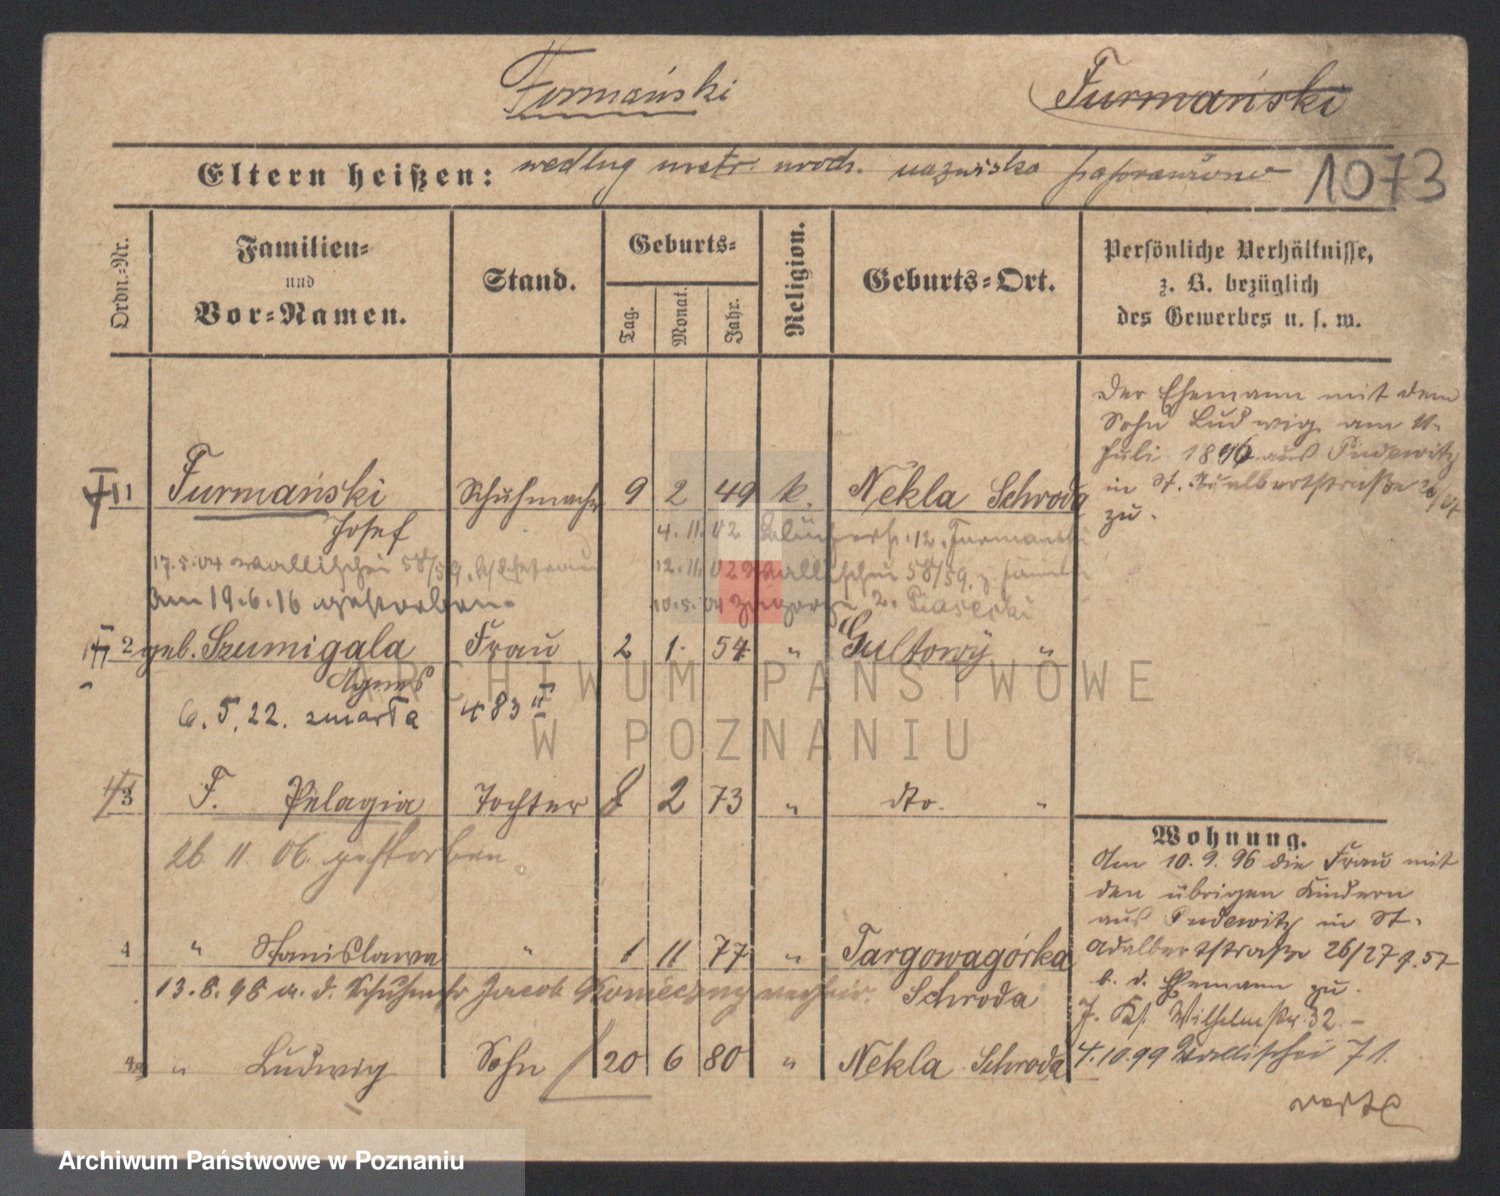 Formański Furmański
Eltern heißen: według metr. urodz. nazwisko poprawiono 1073
Ordn.=Nr.
Familien=
und
Vor=Namen.
Stand.
Geburts=
Tag.
Monat.
Jahr.
Religion.
Geburts=Ort.
Persönliche Verhältnisse,
z. B. bezüglich
des Gewerbes u. s. w.
Der Ehemann mit dem
Sohn Ludwig am 11.
Juli 1896 aus Pudewitz
in St. Adalbertstraße 26/27
zu.
1 Furmański Schuhmacher 9 2 49 k. Nekla Schroda
Josef
4.11.02 Blücherstr. 12. Furmanski
17.5.04 Wallischei 58/59. b/Ehefrau
12.11.02 Wallischei 58/59. z. Familie
am 19.6.16 gestorben.
10.5.04 2. Piasecki
2 geb. Szumigala Frau 2 1. 54 " Gultowÿ "
Agnes
6.5.22. zmarła 483 II
3 F. Pelagia Tochter 8 2 73 " dto. "
26 11. 06. gestorben
4 " Stanislawa " 1 11 77 " Targowagórka
13.8.98 a. d. Schuhmchr Jacob Konieczny verheir. Schroda
" Ludwig Sohn 20 6 80 " Nekla Schroda
Wohnung.
Am 10.9.96 die Frau mit
den übrigen Kindern
aus Pudewitz in St.
Adalbertstraße 26/27
b. d. Ehemann zu.
Wilhelmstr. 32. –
4.10.99 Wallischei 71.
verte
ARCHIWUM PAŃSTWOWE
W POZNANIU
Archiwum Państwowe w Poznaniu